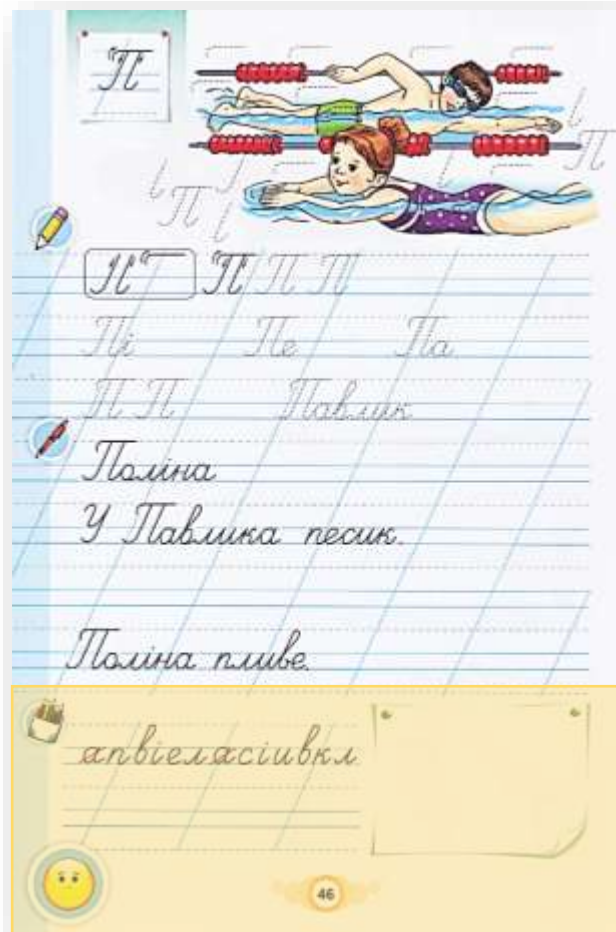 П
П П
П
П П П П
Пі Пе Па
П П Павлик
Поліна
У Павлика песик.
Поліна пливе.
апвіеласіивкл
46